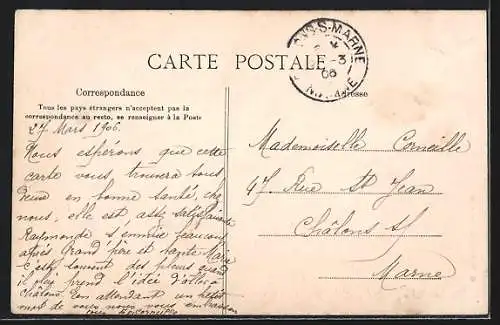 CARTE POSTALE
Correspondance
Tous les pays étrangers n'acceptent pas la
correspondance au recto, se renseigner à la Poste
Adresse
NS-S-MARNE
-3
06
MARNE
27 Mars 1906.
Nous espérons que cette
carte vous trouvera tous
deux en bonne santé, chez
nous, elle est assez satisfaisante
Raymonde s'ennuie beaucoup
après Grand'père et tante Marie
c'est souvent des pleurs quand
il lui prend l'idée d'aller à
Châlons. En attendant un petit
mot de vous nous vous embrassons
Mademoiselle Corneille
47 Rue St Jean
Châlons s/
Marne